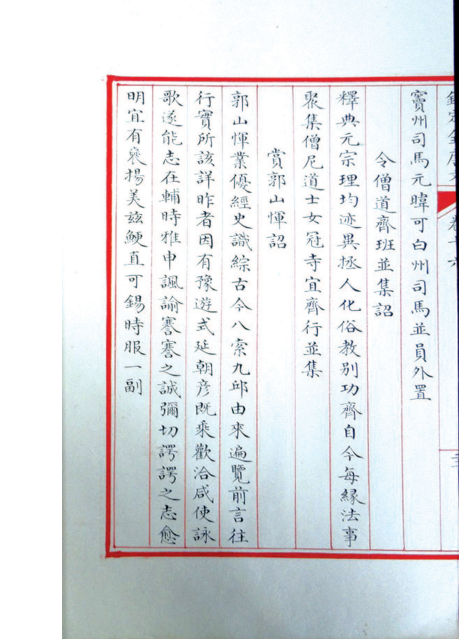 欽定全唐文
卷十六
竇州司馬元暐可白州司馬並員外置
令僧道齊班並集詔
釋典元宗理均迹異拯人化俗教别功齊自今每緣法事
聚集僧尼道士女冠寺宜齊行並集
賞郭山惲詔
郭山惲業優經史識綜古今八索九邱由來遍覽前言往
行實所該詳昨者因有豫遊式延朝彦既乘歡洽咸使詠
歌遂能志在輔時雅申諷諭謇謇之誠彌切諤諤之志愈
明宜有襃揚美兹鯁直可錫時服一副